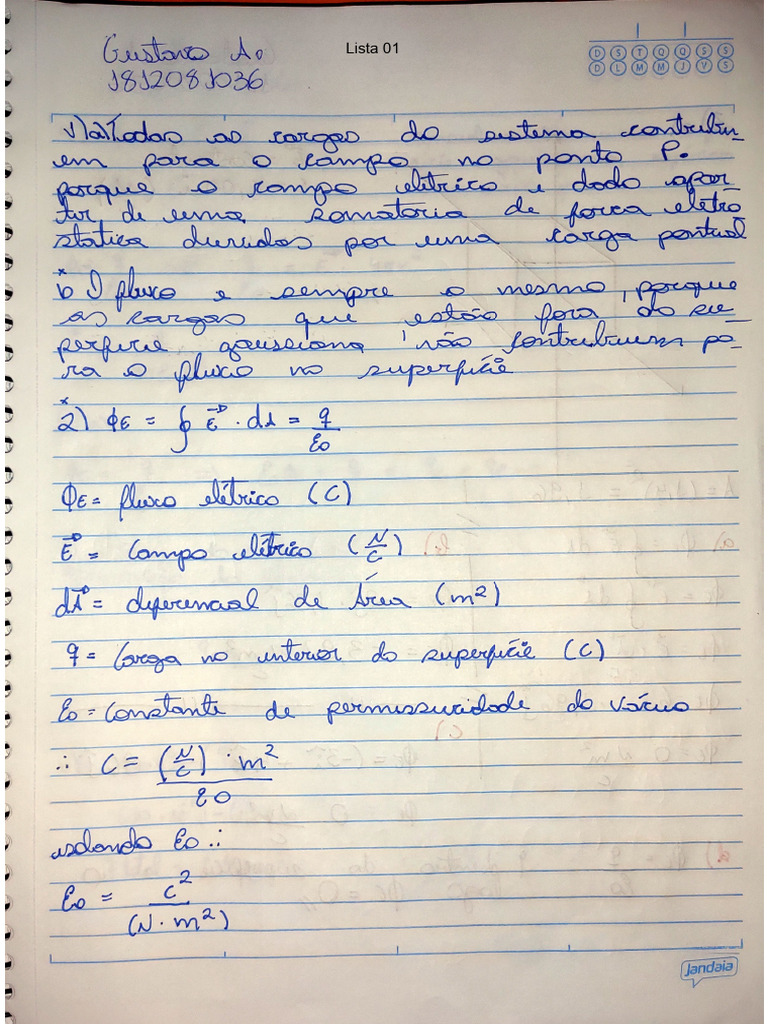 Gustavo A.
Lista 01
1812081036
D S T Q Q S S
D L M M J V S
1) a) Todas as cargas do sistema contribu-
em para o campo no ponto P.
porque o campo elétrico e dado apar-
tir, de uma somatoria de forca eletro
statica dividas por uma carga pontual
b) O fluxo e sempre o mesmo, porque
as cargas que estão fora da su-
perficie gaussiana, não contribuem pa-
ra o fluxo na superfície
2) ΦE = ∮ E⃗ · dA = q/Eo
ΦE = fluxo elétrico (C)
E⃗ = Campo elétrico (N/C)
dA⃗ = diferencial de Área (m²)
q = Carga no interior da superfície (C)
Eo = Constante de permissividade do vácuo
∴ C = (N/C) · m² / Eo
isolando Eo ∴
Eo = C² / (N · m²)
jandaia